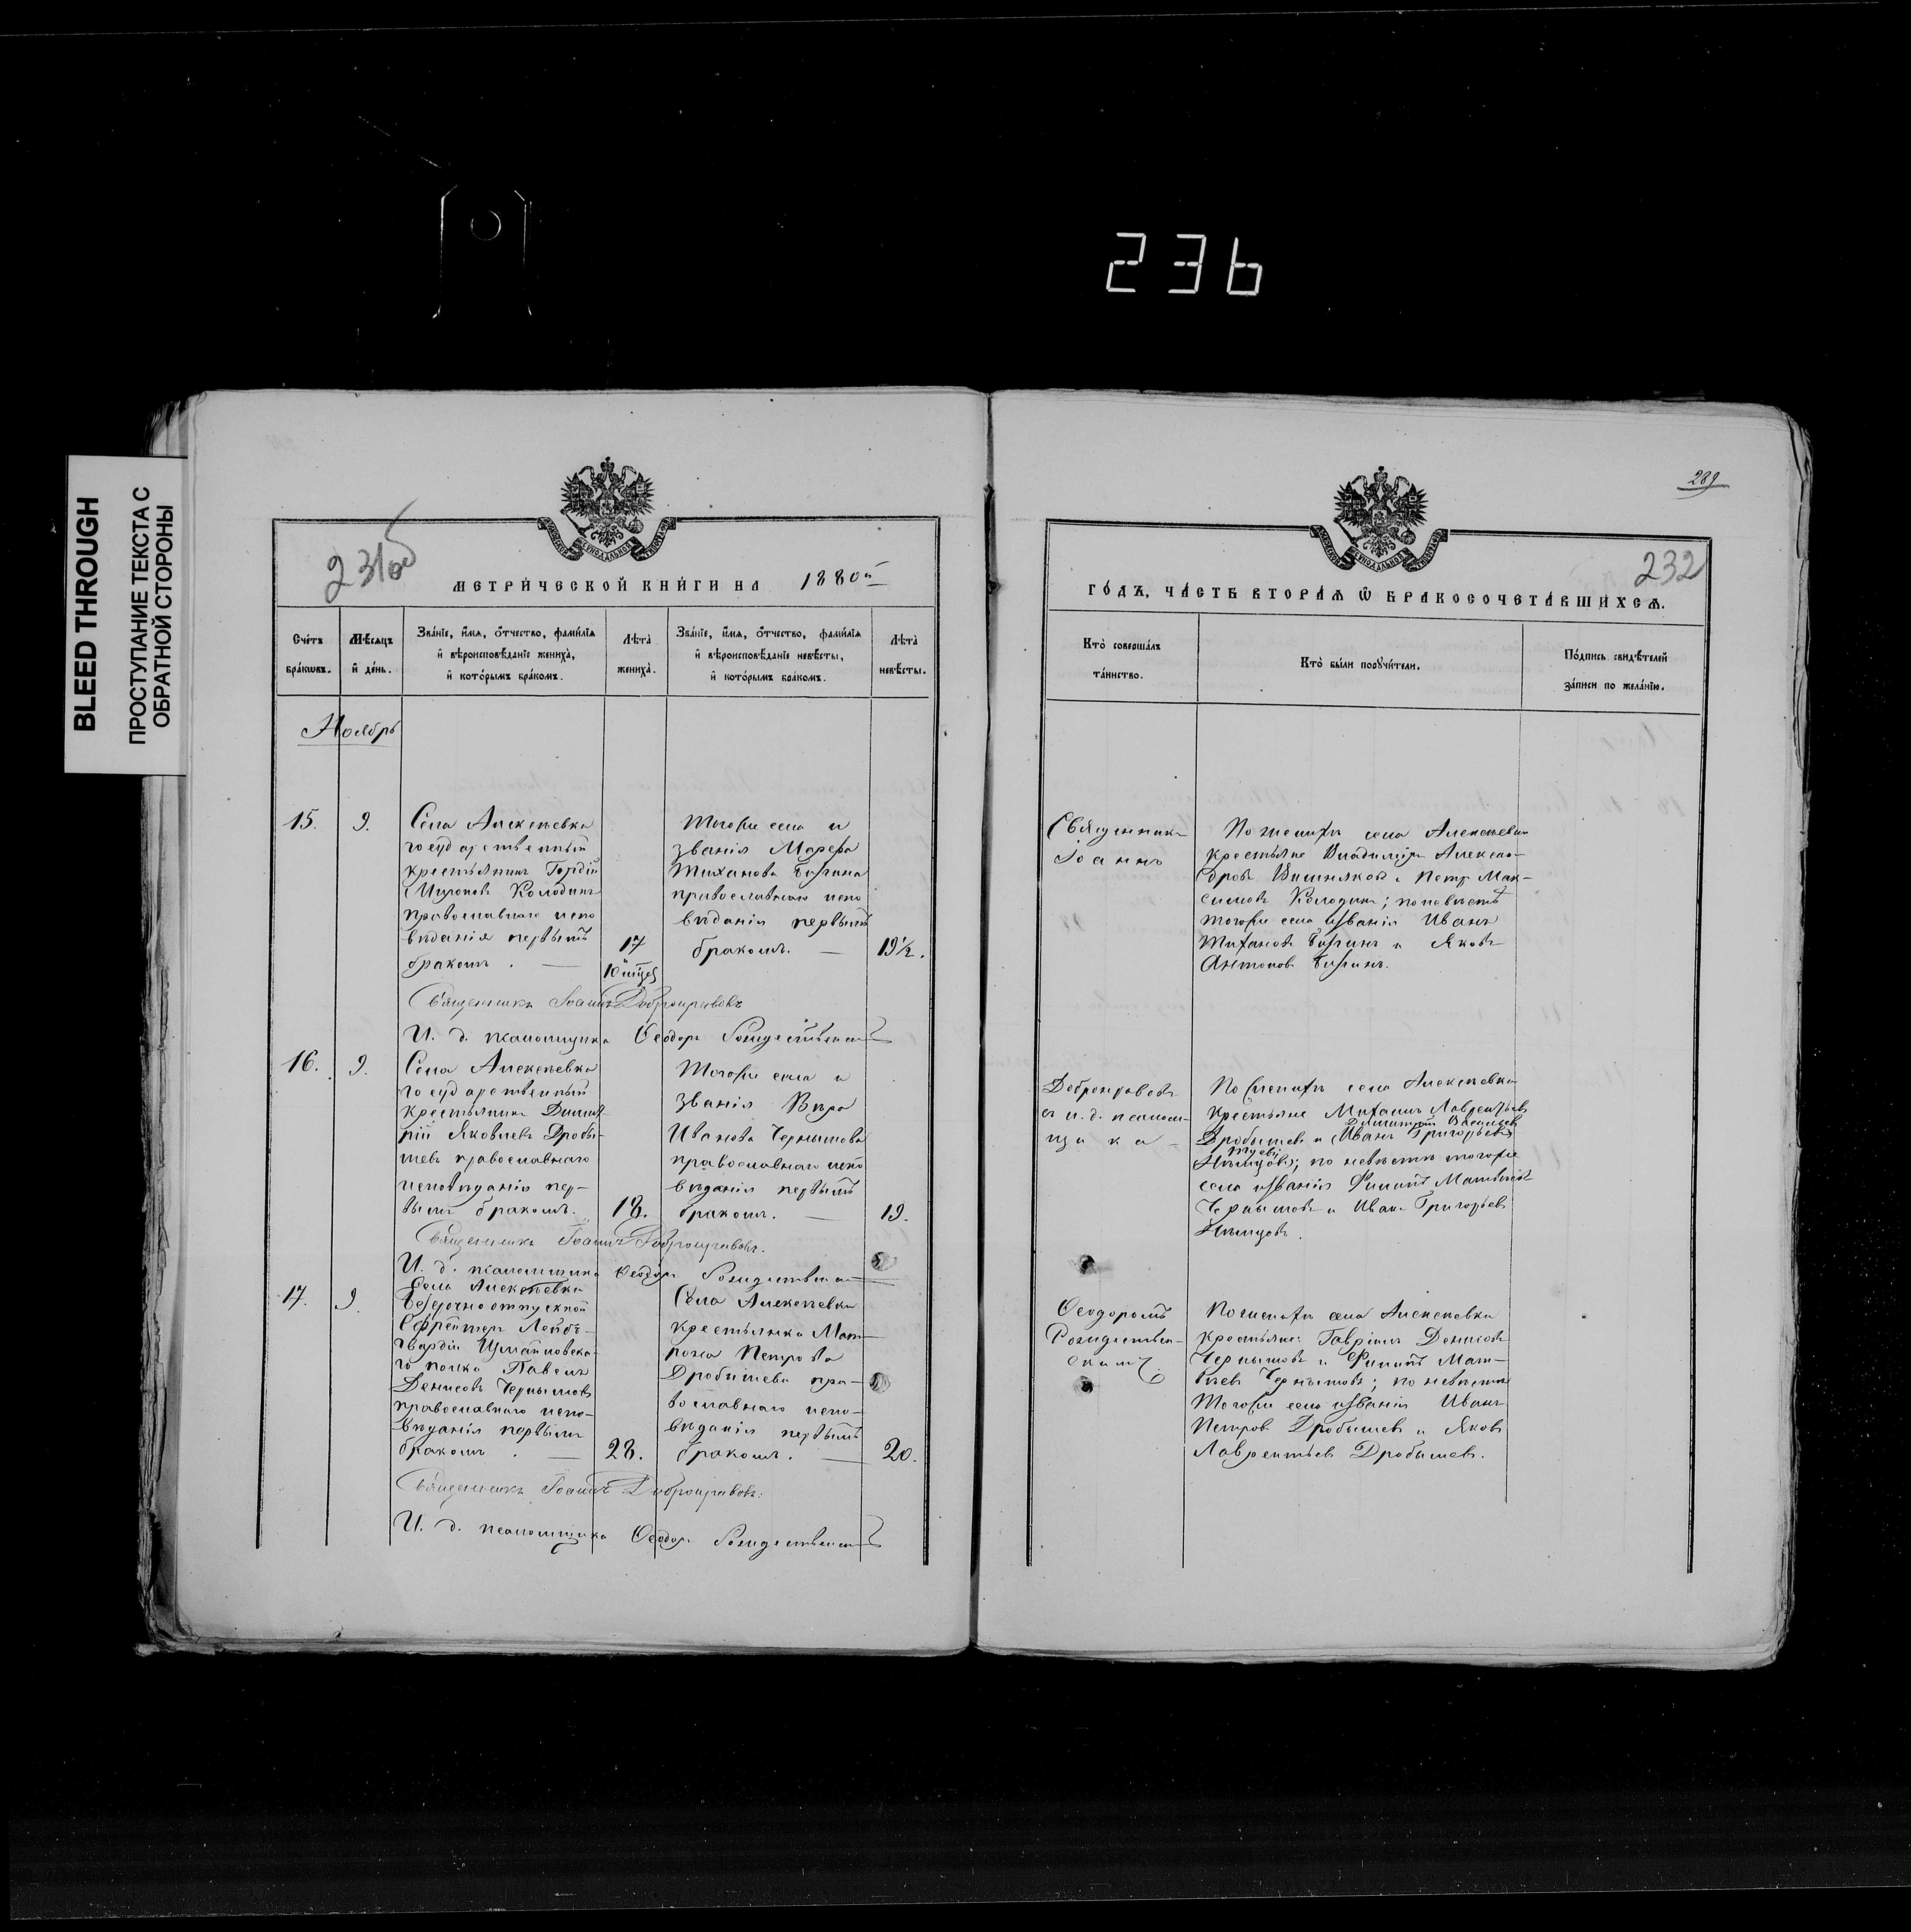 236
BLEED THROUGH
ПРОСТУПАНИЕ ТЕКСТА С
ОБРАТНОЙ СТОРОНЫ
231об
МЕТРИ́ЧЕСКОЙ КНИ́ГИ НА 1880й
Сче́тъ бра́кωвъ.
Мѣ́сяцъ и҆ де́нь.
Зва́нїе, и҆́мя, ѻ҆́тчество, фами́лїя и҆ вѣроисповѣ́данїе жениха̀, и҆ кото́рымъ бра́комъ.
Лѣ́та жениха̀.
Зва́нїе, и҆́мя, ѻ҆́тчество, фами́лїя и҆ вѣроисповѣ́данїе невѣ́сты, и҆ кото́рымъ бра́комъ.
Лѣ́та невѣ́сты.
Ноябрь
15.
9.
Села Алексѣевка
государственный
крестьянинъ Гордій
Мироновъ Колодинъ
православнаго испо
вѣданія первымъ
бракомъ. —
17
Тогоже села и
званія Марѳа
Тиханова
православнаго испо
вѣданія первымъ
бракомъ. —
19½.
Священникъ Іоаннъ Добронравовъ
И. д. псаломщика Ѳеодоръ Рождественскій
16.
9.
Села Алексѣевка
государственный
крестьянинъ Димит
рій Яковлевъ Дробы-
шевъ православнаго
исповѣданія пер-
вымъ бракомъ.
18.
Тогоже села и
званія Вѣра
Иванова Чернышова
православнаго испо
вѣданія первымъ
бракомъ. —
19.
Священникъ Іоаннъ Добронравовъ.
И. д. псаломщика Ѳеодоръ Рождественскій
17.
9.
Села Алексѣевка
безсрочноотпускной
Ефрейторъ Лейбъ-
Гвардіи Измайловска-
го полка Павелъ
Денисовъ Чернышовъ
православнаго испо-
вѣданія первымъ
бракомъ. —
28.
Села Алексѣевка
крестьянка Мат-
рона Петрова
Дробышева пра-
вославнаго испо-
вѣданія первымъ
бракомъ. —
20.
Священникъ Іоаннъ Добронравовъ.
И. д. псаломщика Ѳеодоръ Рождественскій
289
232
ГО́ДЪ, ЧА́СТЬ ВТОРА́Я Ѡ҆ БРАКОСОЧЕТА́ВШИХСЯ.
Кто̀ соверша́лъ та́инство.
Кто̀ бы́ли порꙋчи́тели.
По́дпись свидѣ́телей за́писи по жела́нїю.
Священникъ
Іоаннъ
По женихѣ села Алексѣевки
крестьяне Владиміръ Алексан-
дровъ Вишняковъ и Петръ Мак-
симовъ Колодинъ; по невѣстѣ
тогоже села и званія Иванъ
Тихановъ и Яковъ
Антоновъ
Добронравовъ
съ и. д. псалом-
щика
По женихѣ села Алексѣевка
крестьяне Михаилъ Лаврентьевъ
Дробышевъ и Иванъ Григорьевъ
Димитрій Васильевъ
Нѣмцовъ; по невѣстѣ тогоже
села и званія Филипъ Матвѣевъ
Чернышовъ и Иванъ Григорьевъ
Нѣмцовъ.
Ѳеодоромъ
Рождествен-
скимъ.
По женихѣ села Алексѣевка
крестьяне: Гавріилъ Денисовъ
Чернышовъ и Филипъ Мат-
вѣевъ Чернышовъ; по невѣстѣ
тогоже села и званія Иванъ
Петровъ Дробышевъ и Яковъ
Лаврентьевъ Дробышевъ.